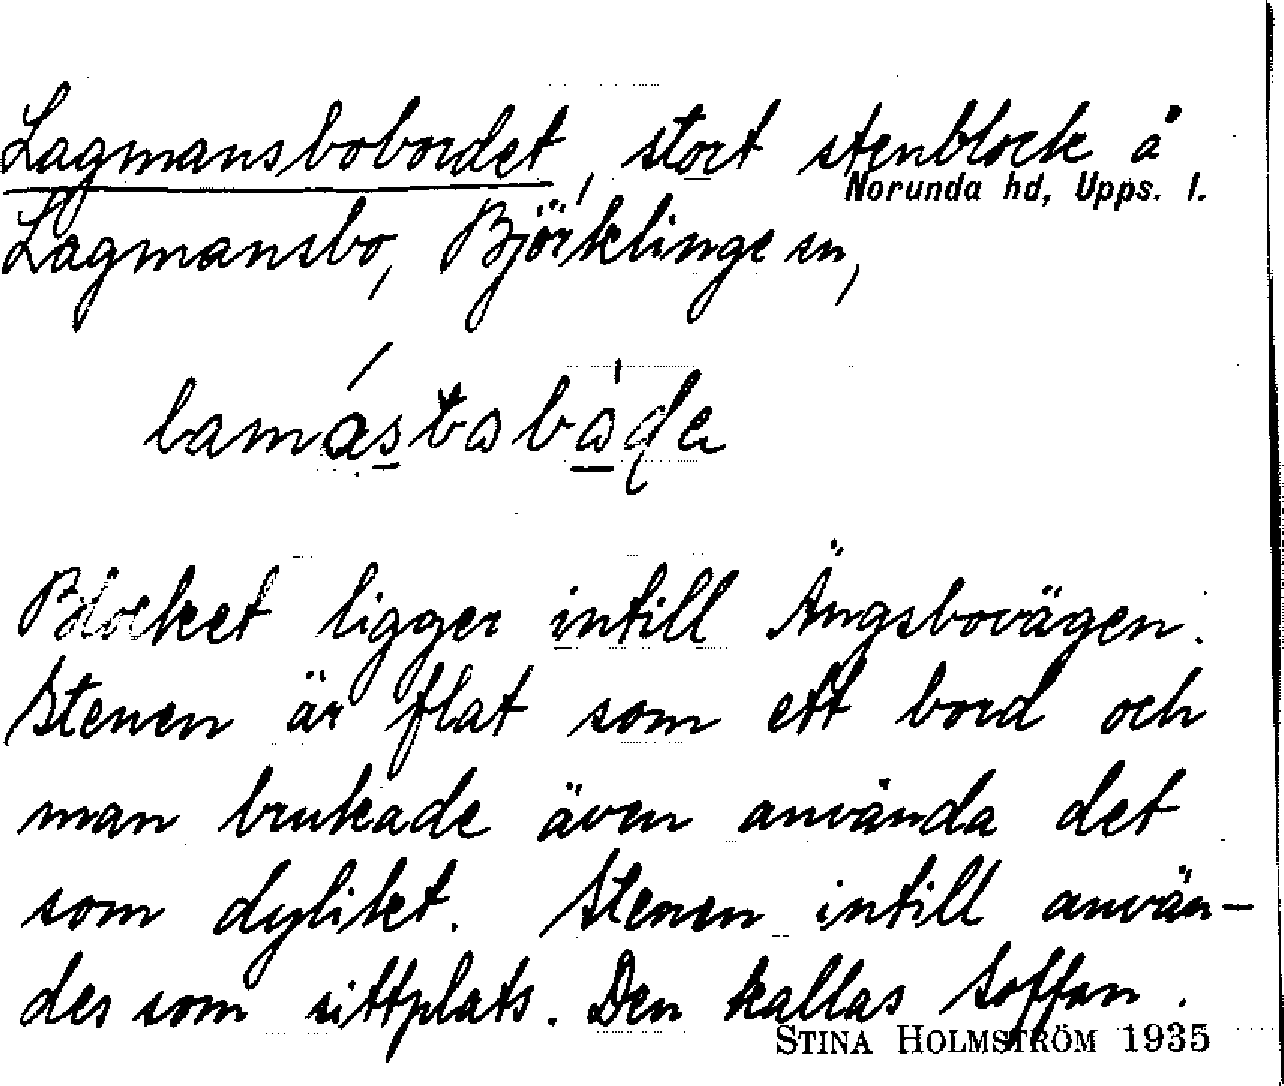 Lagmansbobordet, stort stenblock å
Norunda hd, Upps. l.
Lagmansbo, Björklinge sn,
Blocket ligger intill Ängsbovägen.
Stenen är flat som ett bord och
man brukade även använda det
som dylikt. Stenen intill använ-
des som sittplats. Den kallas Soffan.
STINA HOLMSTRÖM 1935